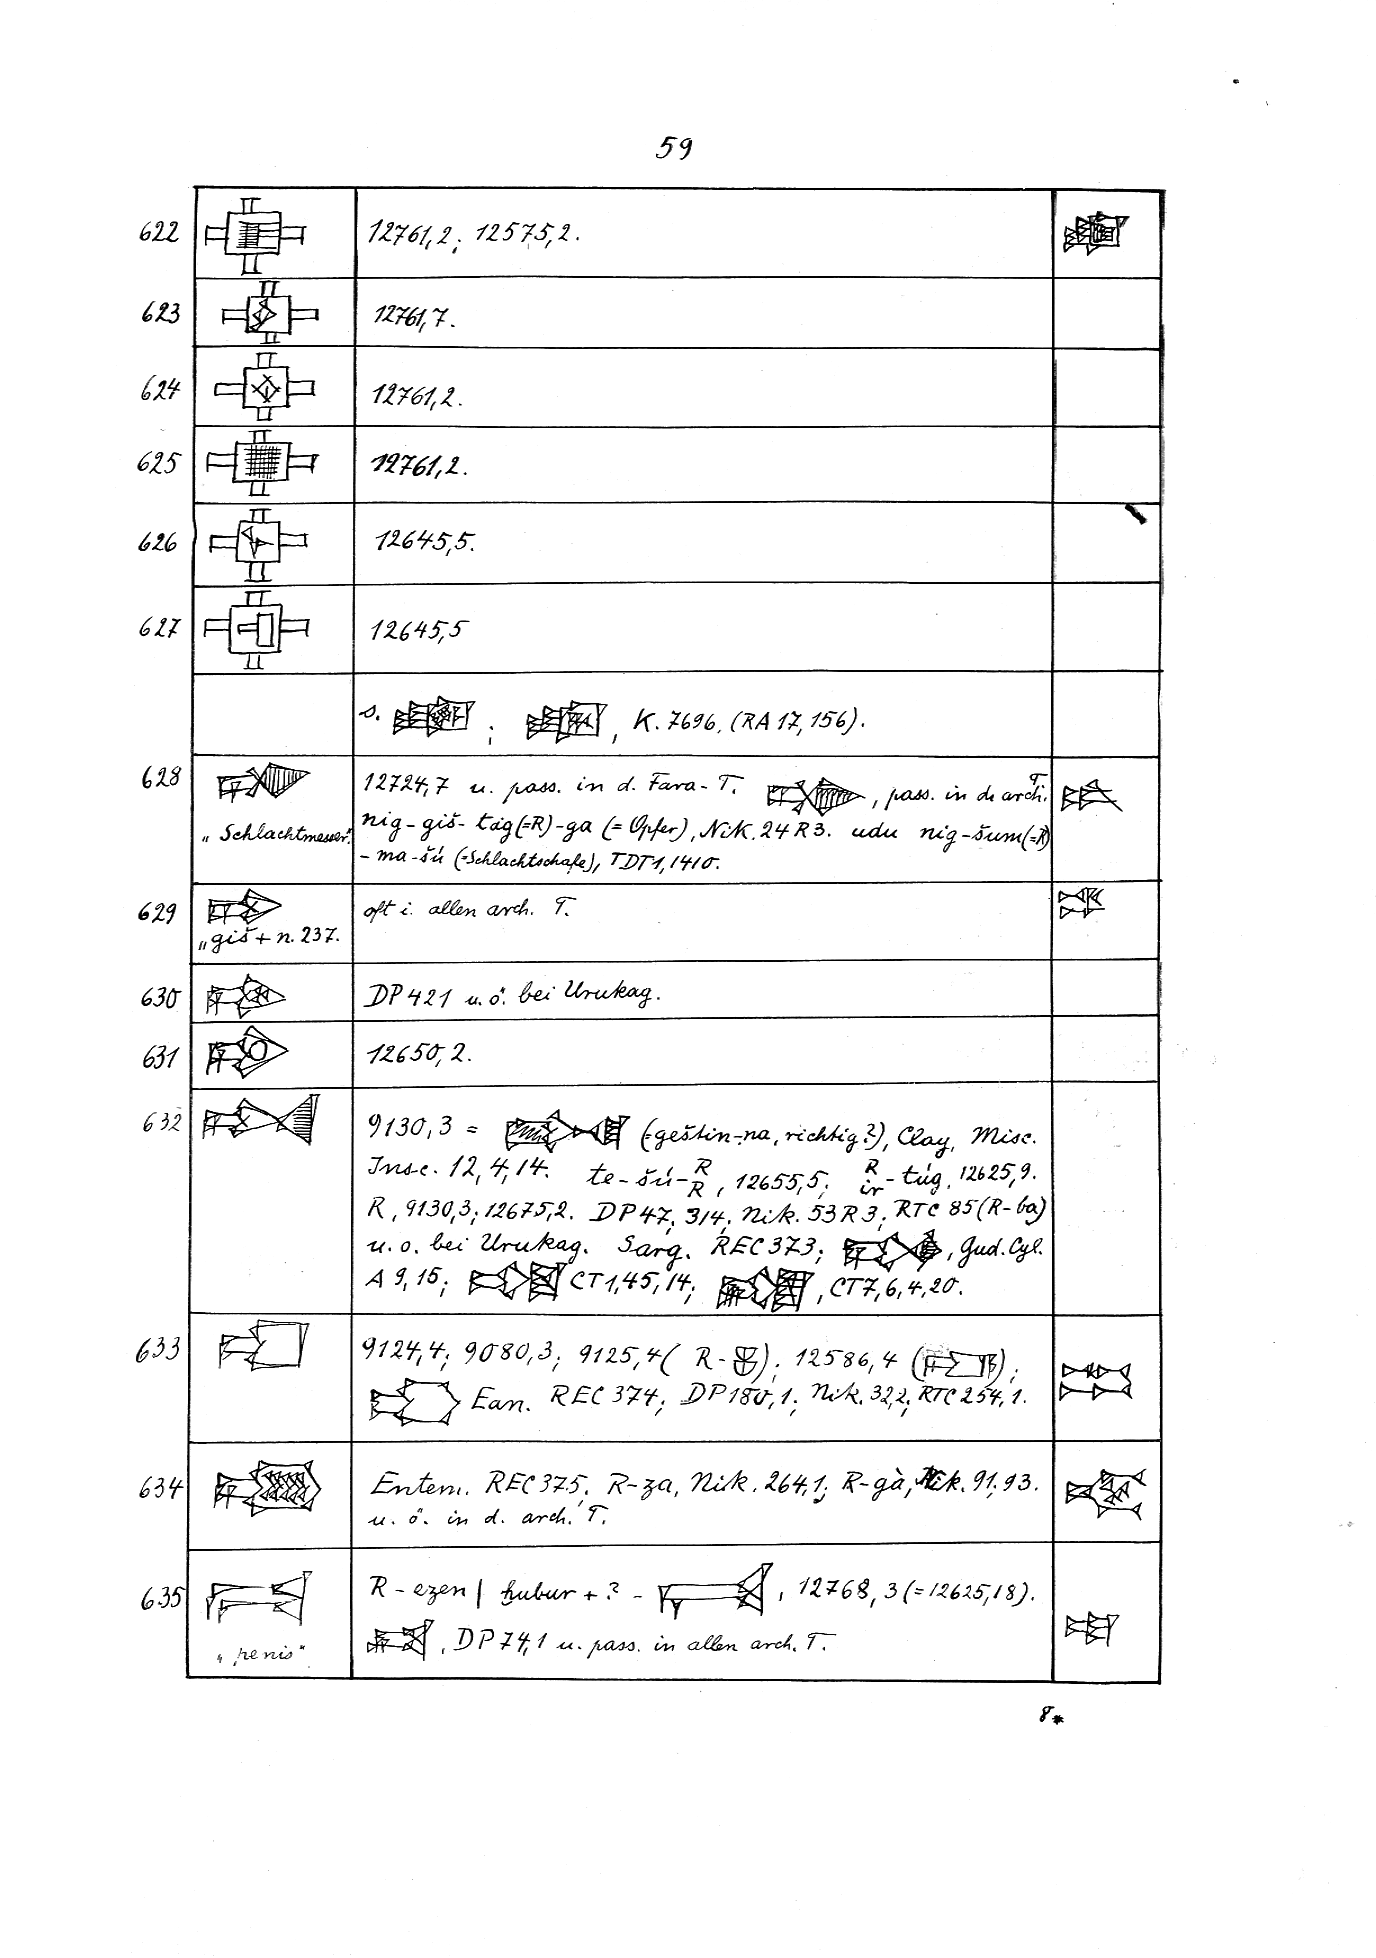 59
622 12761,2; 12575,2.
623 12761,7.
624 12761,2.
625 12761,2.
626 12645,5.
627 12645,5
s. ; , K. 7696, (RA 17, 156).
628 12724,7 u. pass. in d. Fara-T. , pass. in d. arch. T.
„Schlachtmesser" nig-giš-tág(=R)-ga (= Opfer), Nik. 24 R 3. udu nig-šum(=R)
-ma-šú (=Schlachtschafe), TDT 1, 1410.
629 oft i. allen arch. T.
„giš + n. 237.
630 DP 421 u. ö. bei Urukag.
631 12650,2.
632 9130,3 = (=geštin-na, richtig?), Clay, Misc.
Insc. 12, 4, 14. te-šú-R R, 12655,5; R ir-túg, 12625,9.
R, 9130,3; 12675,2. DP 47; 314; Nik. 53 R 3; RTC 85 (R-ba)
u. o. bei Urukag. Sarg. REC 373; , Gud. Cyl.
A 9, 15; CT 1, 45, 14; , CT 7, 6, 4, 20.
633 9124,4; 9080,3; 9125,4 ( R- ); 12586,4 ( );
Ean. REC 374; DP 180,1; Nik. 32,2; RTC 254,1.
634 Entem. REC 375; R-za, Nik. 264,1; R-gà, Nik. 91; 93.
u. ö. in d. arch. T.
635 R-ezen | ḫubur + ? - , 12768,3 (=12625,18).
„penis" , DP 74,1 u. pass. in allen arch. T.
8*